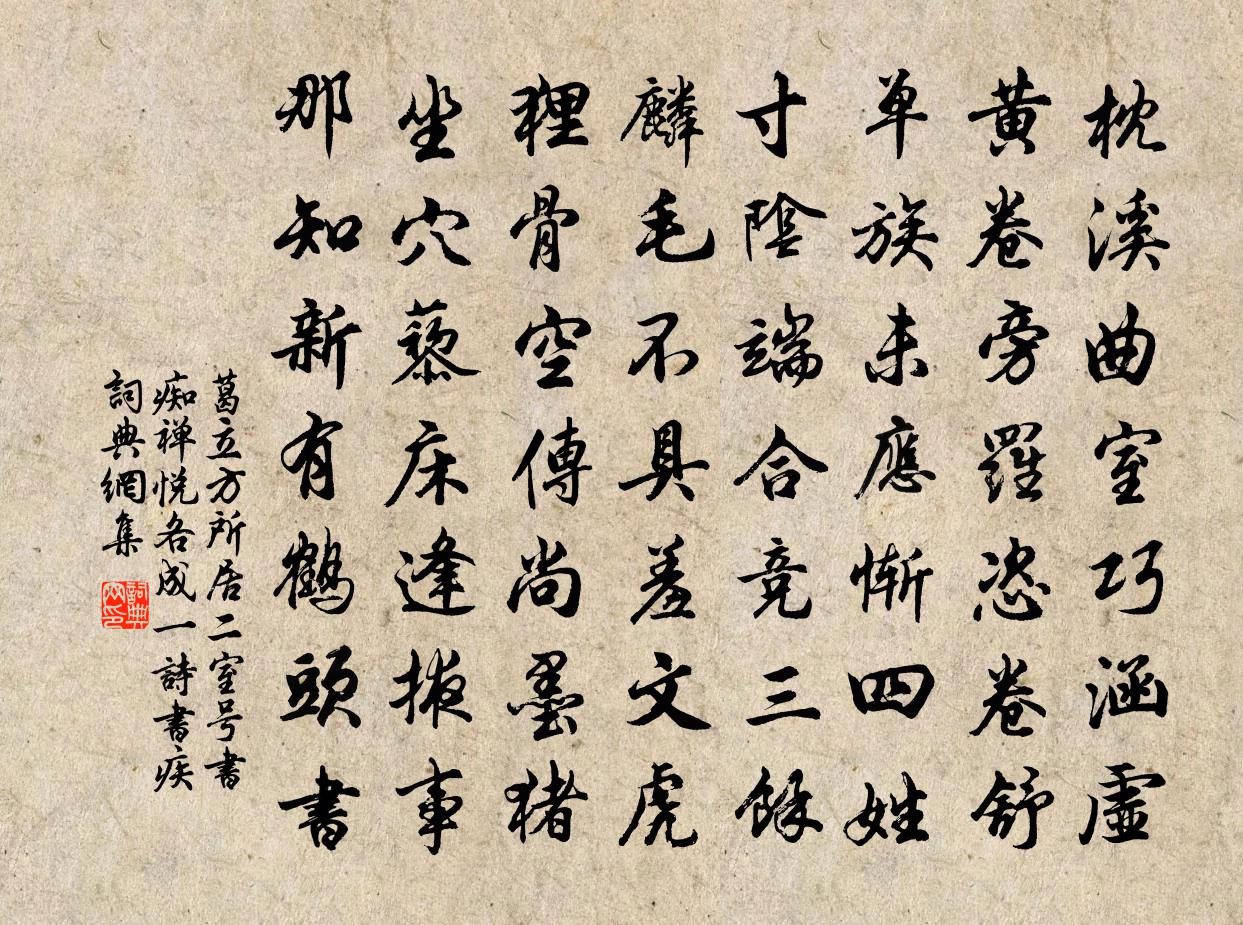 枕溪曲室巧涵虛
黃卷旁羅恣卷舒
単族未應慚四姓
寸陰端合竞三餘
麟毛不具羞文虎
狸骨空傳尚墨猪
坐穴藜床逢掖事
那知新有鶴頭書
葛立方所居二室号書
痴禅悦各成一詩書疾
詞典網集
詞典网印